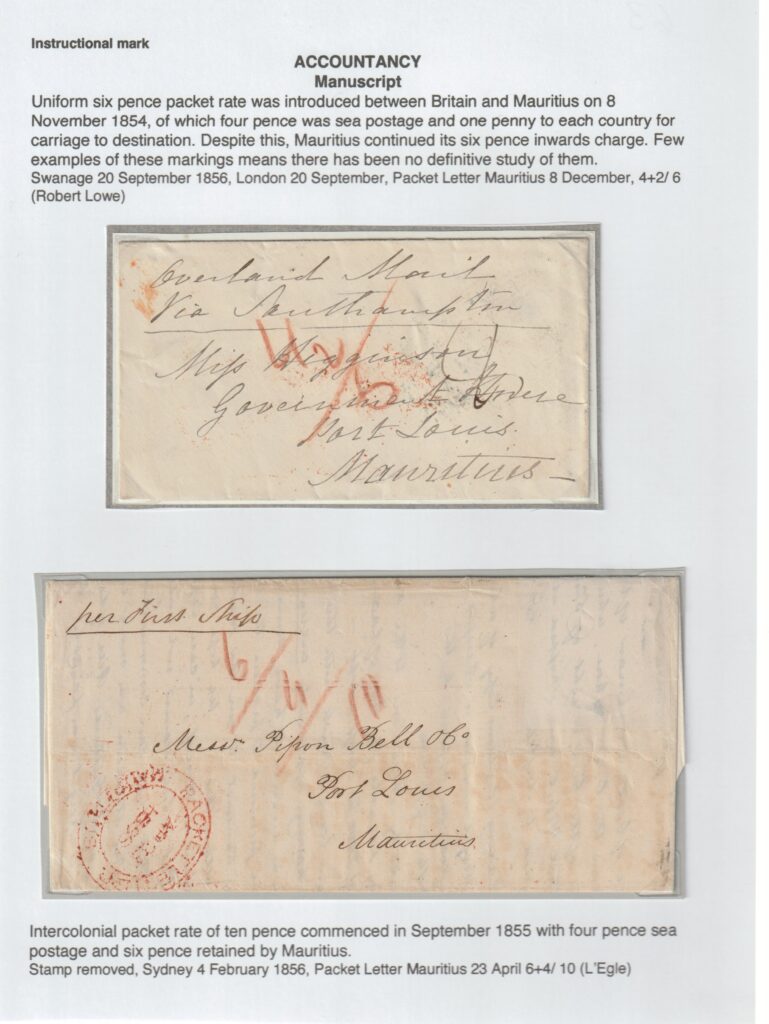 Instructional mark
ACCOUNTANCY
Manuscript
Uniform six pence packet rate was introduced between Britain and Mauritius on 8
November 1854, of which four pence was sea postage and one penny to each country for
carriage to destination. Despite this, Mauritius continued its six pence inwards charge. Few
examples of these markings means there has been no definitive study of them.
Swanage 20 September 1856, London 20 September, Packet Letter Mauritius 8 December, 4+2/ 6
(Robert Lowe)
Overland Mail
Via Southampton
4/2/6
Miss Higginson
Government House
Port Louis
Mauritius
per First Ship
6/4/10
Messrs. Pipon Bell & Co
Port Louis
Mauritius
PACKET LETTER MAURITIUS
Intercolonial packet rate of ten pence commenced in September 1855 with four pence sea
postage and six pence retained by Mauritius.
Stamp removed, Sydney 4 February 1856, Packet Letter Mauritius 23 April 6+4/ 10 (L'Egle)